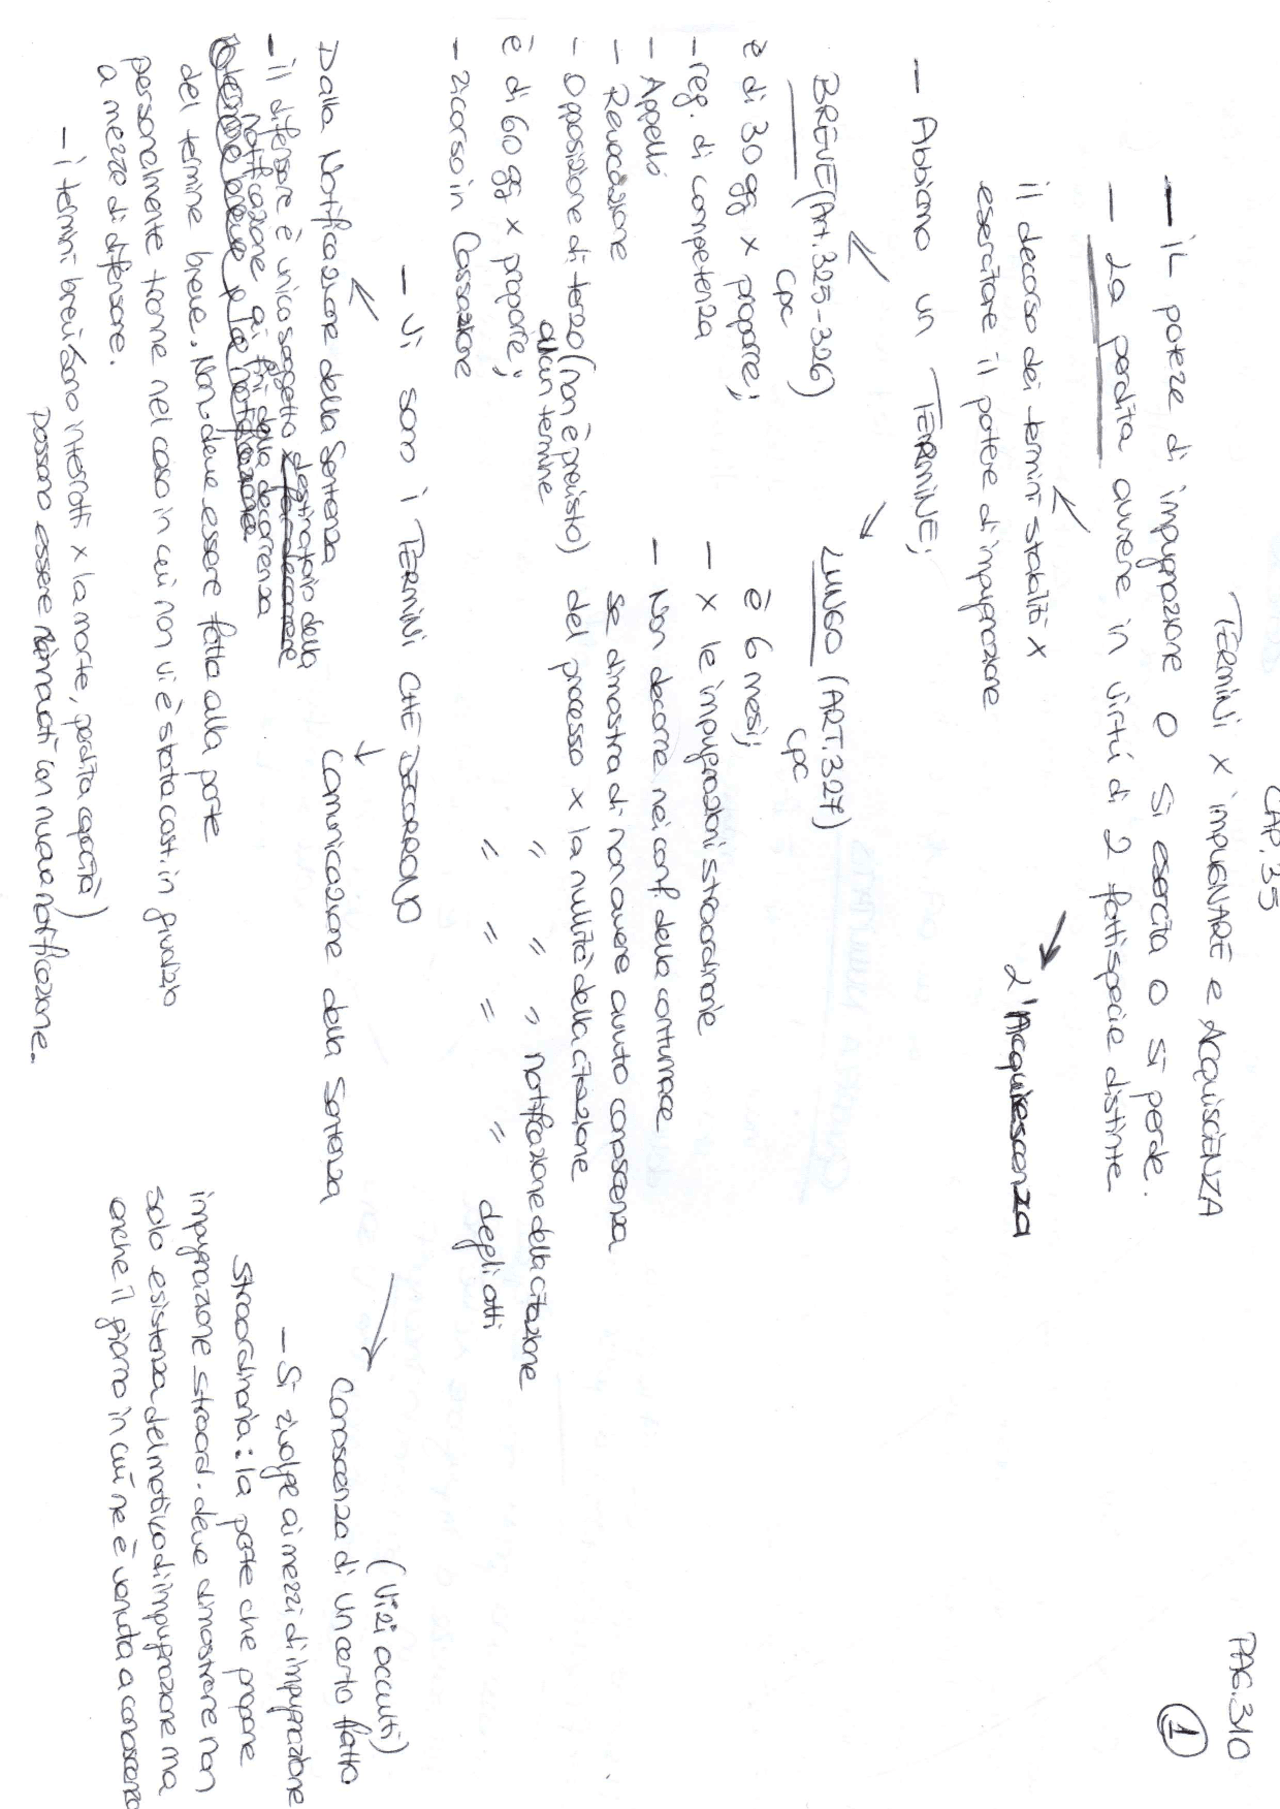 CAP. 35
PAG. 310
1
TERMINI x impUGNARE e AcquiscIENZA
- iL potere di impugnazione o si esercita o si perde.
- La perdita avviene in virtú di 2 fattispecie distinte
il decorso dei termini stabiliti x
esercitare il potere di impugnazione
L'Acquiescenza
- Abbiamo un TERMINE;
BREVE (Art. 325-326)
cpc
è di 30 gg x proporre;
- reg. di competenza
- Appello
- Revocazione
- Opposizione di terzo (non è previsto)
alcun termine
è di 60 gg x proporre;
- ricorso in Cassazione
LUNGO (ART. 327)
cpc
è 6 mesi;
- x le impugnazioni straordinarie
- Non decorre nei conf. della contumace
se dimostra di non avere avuto conoscenza
del processo x la nullità della citazione
" " " notificazione della citazione
" " " " degli atti
- Vi sono i TERMINI CHE DECORRONO
Dalla Notificazione della Sentenza
- il difensore è unico soggetto destinatario della
notificazione ai fini della decorrenza
del termine breve. Non deve essere fatta alla parte
personalmente tranne nel caso in cui non vi è stata cost. in giudizio
a mezzo di difensore.
- i termini brevi sono interrotti x la morte, perdita capacità)
possono essere rinnovati con nuova notificazione.
Comunicazione della Sentenza
(Vizi occulti)
Conoscenza di un certo fatto
- Si rivolge ai mezzi di impugnazione
straordinaria: la parte che propone
impugnazione straord. deve dimostrare non
solo esistenza del motivo di impugnazione ma
anche il giorno in cui ne è venuta a conoscenza